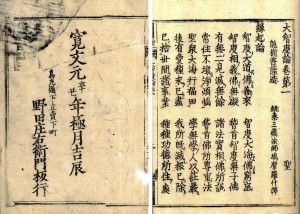 大智度論卷第一 聖
龍樹菩薩造
後秦三藏法師鳩摩羅什譯
緣起論
智度大道佛從來 智度大海佛窮盡
智度相義佛無礙 稽首智度無等佛
有無二見滅無餘 諸法實相佛所說
常住不壞淨煩惱 稽首佛所尊重法
聖眾大海行福田 學無學人以莊嚴
後有愛種永已盡 我所既滅根已除
已捨世間諸事業 種種功德所住處
寛文元辛丑年極月吉辰
烏丸通下立賣下町
野田庄右衛門板行